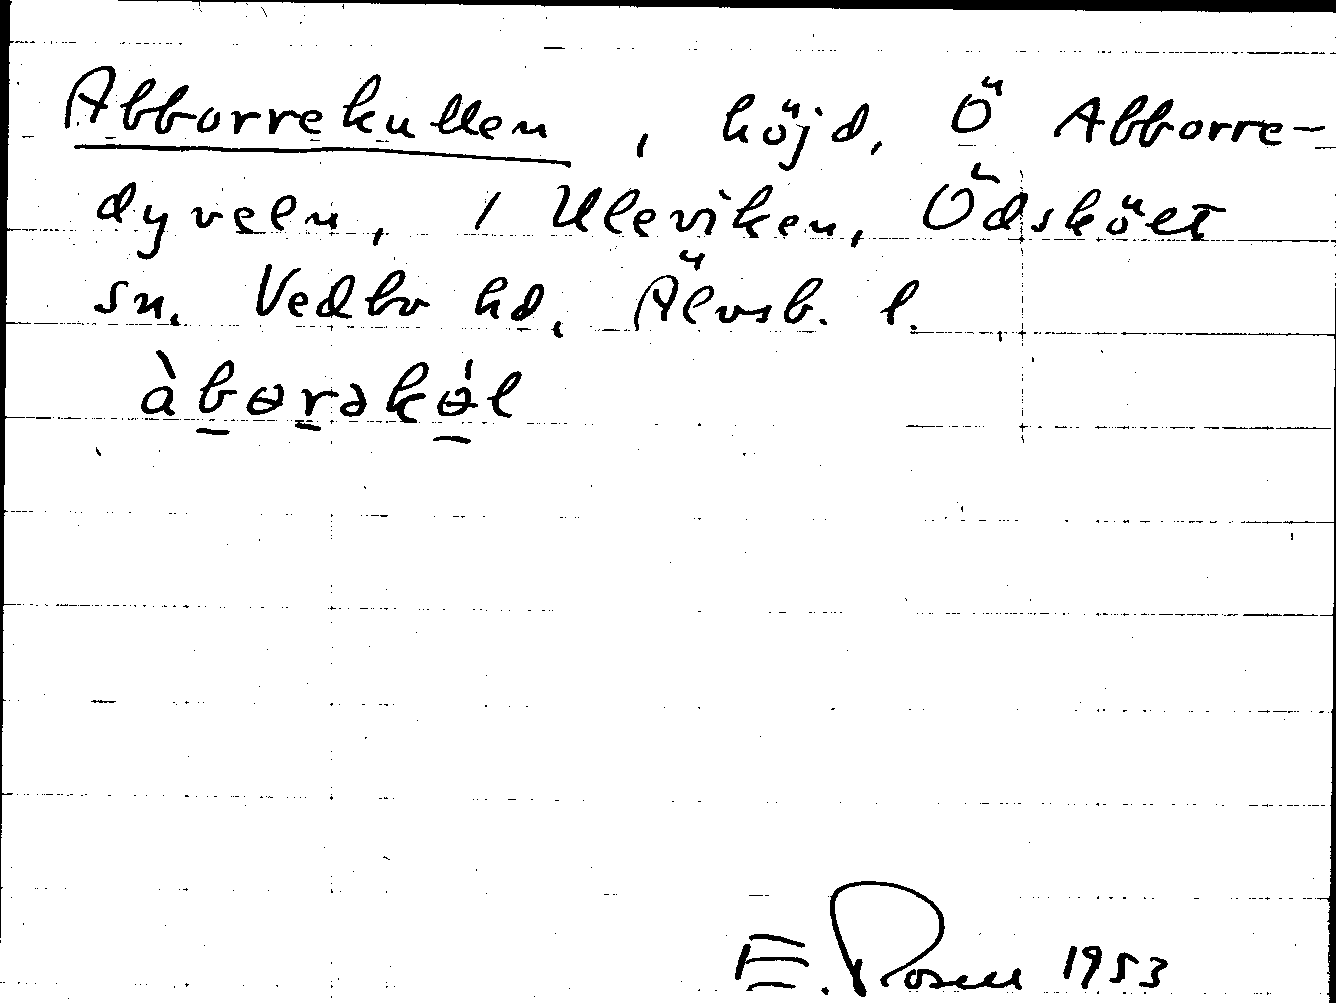 Abborrekullen, höjd, Ö Abborre-
dyveln, 1 Uleviken, Ödsköelt
sn. Vedbo hd, Älvsb. l.
àbɵrəkɵ́l
E. Rosell 1953